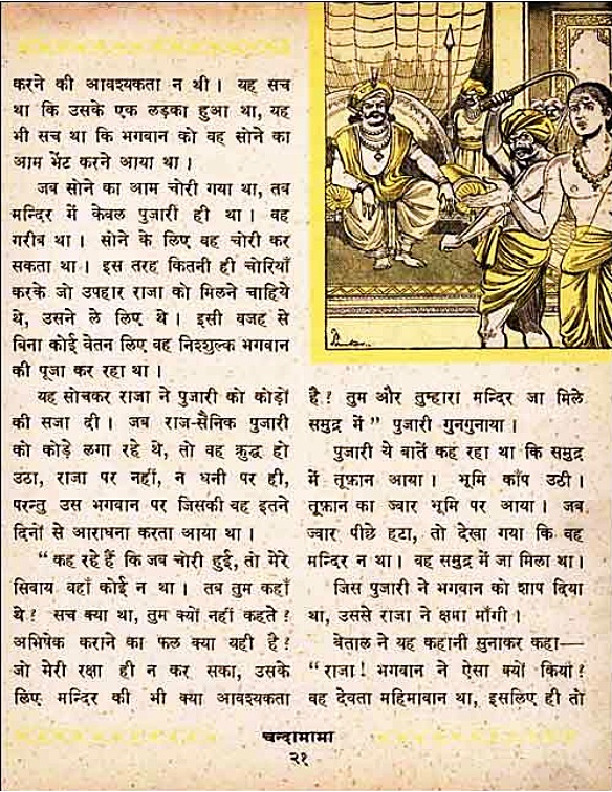 करने की आवश्यकता न थी। यह सच
था कि उसके एक लड़का हुआ था, यह
भी सच था कि भगवान को वह सोने का
आम भेंट करने आया था।
जब सोने का आम चोरी गया था, तब
मन्दिर में केवल पुजारी ही था। वह
गरीब था। सोने के लिए वह चोरी कर
सकता था। इस तरह कितनी ही चोरियाँ
करके जो उपहार राजा को मिलने चाहिये
थे, उसने ले लिए थे। इसी वजह से
बिना कोई वेतन लिए वह निश्शुल्क भगवान
की पूजा कर रहा था।
यह सोचकर राजा ने पुजारी को कोड़ों
की सजा दी। जब राज-सैनिक पुजारी
को कोड़े लगा रहे थे, तो वह क्रुद्ध हो
उठा, राजा पर नहीं, न धनी पर ही,
परन्तु उस भगवान पर जिसकी वह इतने
दिनों से आराधना करता आया था।
"कह रहे हैं कि जब चोरी हुई, तो मेरे
सिवाय वहाँ कोई न था। तब तुम कहाँ
थे? सच क्या था, तुम क्यों नहीं कहते?
अभिषेक कराने का फल क्या यही है?
जो मेरी रक्षा ही न कर सका, उसके
लिए मन्दिर की भी क्या आवश्यकता
है? तुम और तुम्हारा मन्दिर जा मिले
समुद्र में" पुजारी गुनगुनाया।
पुजारी ये बातें कह रहा था कि समुद्र
में तूफ़ान आया। भूमि काँप उठी।
तूफ़ान का ज्वार भूमि पर आया। जब
ज्वार पीछे हटा, तो देखा गया कि वह
मन्दिर न था। वह समुद्र में जा मिला था।
जिस पुजारी ने भगवान को शाप दिया
था, उससे राजा ने क्षमा माँगी।
बेताल ने यह कहानी सुनाकर कहा—
"राजा! भगवान ने ऐसा क्यों किया?
वह देवता महिमावान था, इसलिए ही तो
चन्दामामा
२१